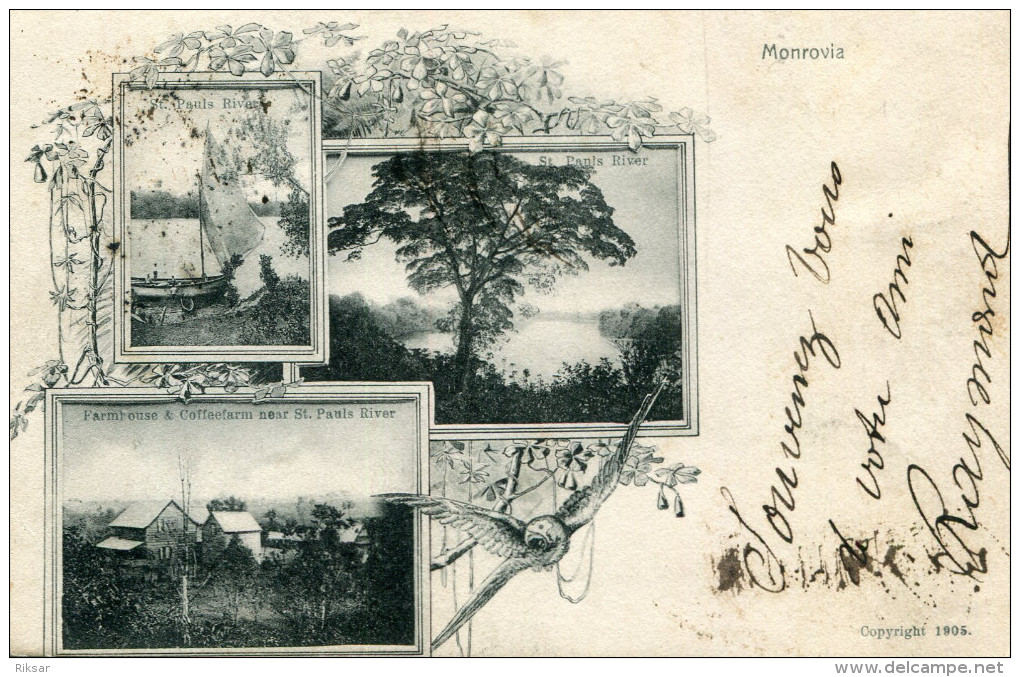 Monrovia
St. Pauls River
St. Pauls River
Farmhouse & Coffeefarm near St. Pauls River
Souvenez Vous
à votre ami
Raymond
Copyright 1905.
Riksar
www.delcampe.net